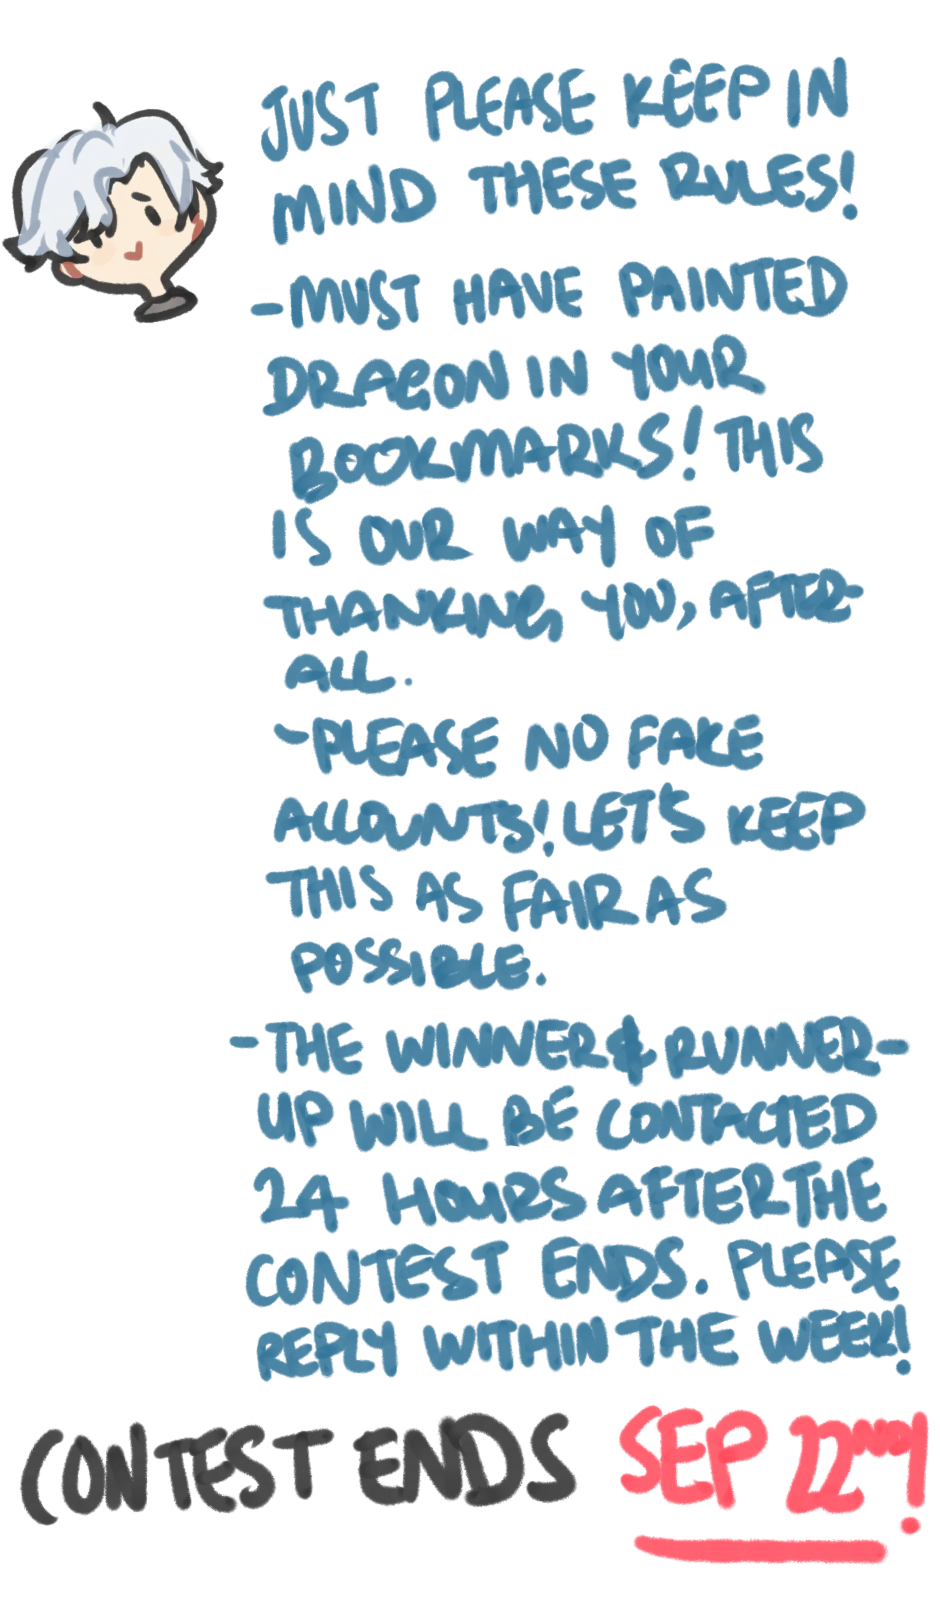 JUST PLEASE KEEP IN
MIND THESE RULES!
-MUST HAVE PAINTED
DRAGON IN YOUR
BOOKMARKS! THIS
IS OUR WAY OF
THANKING YOU, AFTER-
ALL.
~PLEASE NO FAKE
ACCOUNTS! LET'S KEEP
THIS AS FAIR AS
POSSIBLE.
-THE WINNER & RUNNER-
UP WILL BE CONTACTED
24 HOURS AFTER THE
CONTEST ENDS. PLEASE
REPLY WITHIN THE WEEK!
CONTEST ENDS SEP 22ND!